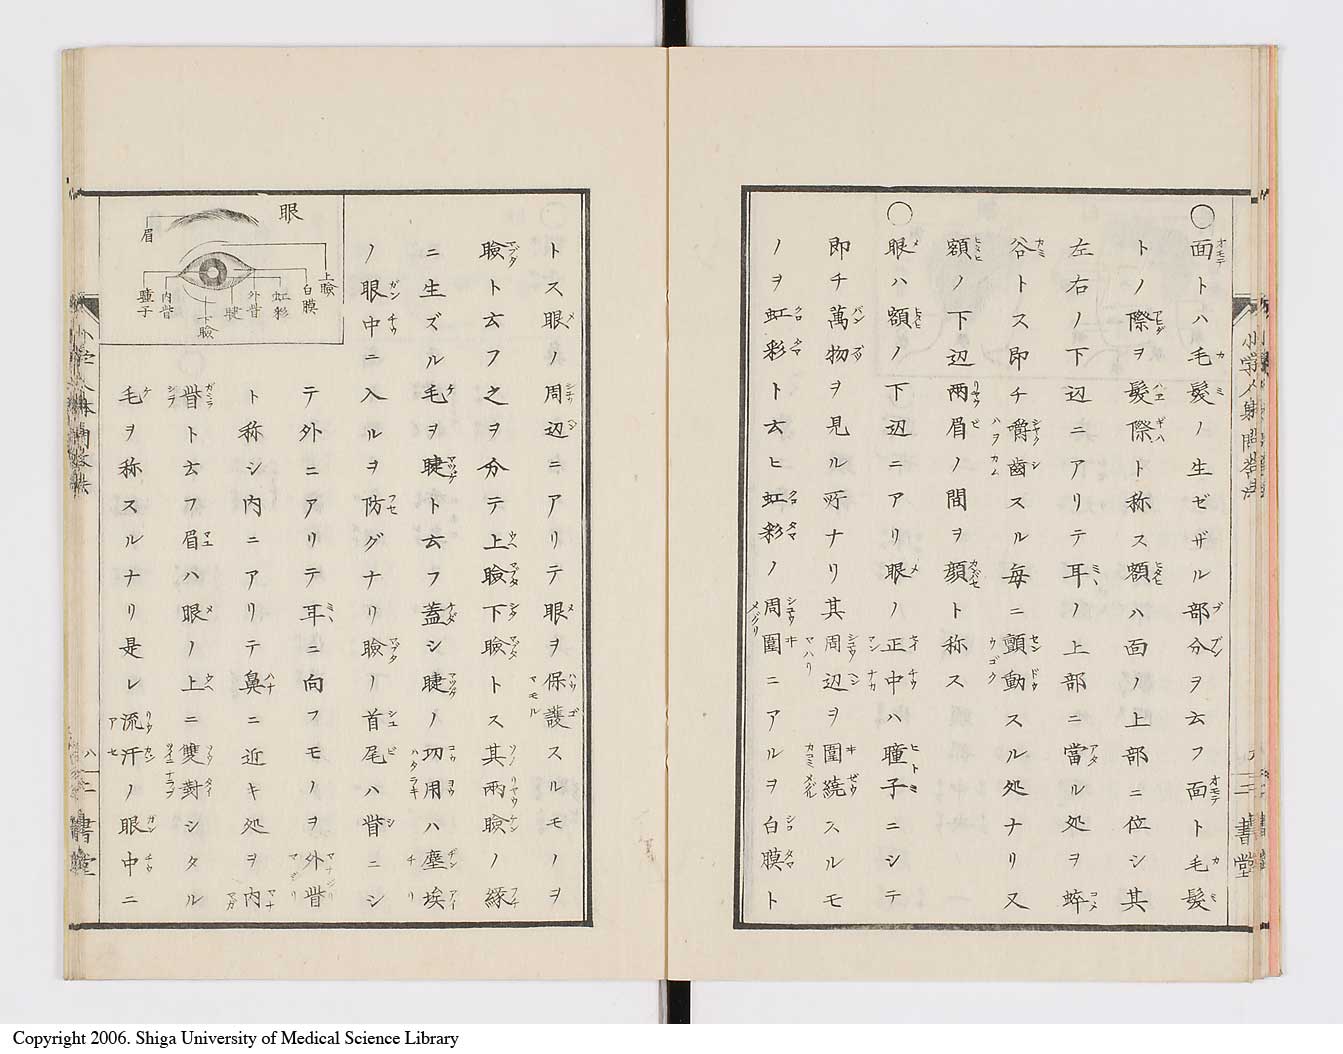 ○面トハ毛髪ノ生ゼザル部分ヲ云フ面ト毛髪
トノ際ヲ髪際ト称ス額ハ面ノ上部ニ位シ其
左右ノ下辺ニアリテ耳ノ上部ニ當ル処ヲ蟀
谷トス即チ嚼齒スル毎ニ顫動スル処ナリ又
額ノ下辺両眉ノ間ヲ顔ト称ス
○眼ハ額ノ下辺ニアリ眼ノ正中ハ瞳子ニシテ
即チ萬物ヲ見ル所ナリ其周辺ヲ圍繞スルモ
ノヲ虹彩ト云ヒ虹彩ノ周圍ニアルヲ白膜ト
トス眼ノ周辺ニアリテ眼ヲ保護スルモノヲ
瞼ト云フ之ヲ分テ上瞼下瞼トス其兩瞼ノ縁
ニ生ズル毛ヲ睫ト云フ蓋シ睫ノ功用ハ塵埃
ノ眼中ニ入ルヲ防グナリ瞼ノ首尾ハ眥ニシ
眼
上瞼
白膜
虹彩
外眥
睫
下瞼
内眥
瞳子
眉
テ外ニアリテ耳ニ向フモノヲ外眥
ト称シ内ニアリテ鼻ニ近キ処ヲ内
眥ト云フ眉ハ眼ノ上ニ雙對シタル
毛ヲ称スルナリ是レ流汗ノ眼中ニ
Copyright 2006. Shiga University of Medical Science Library